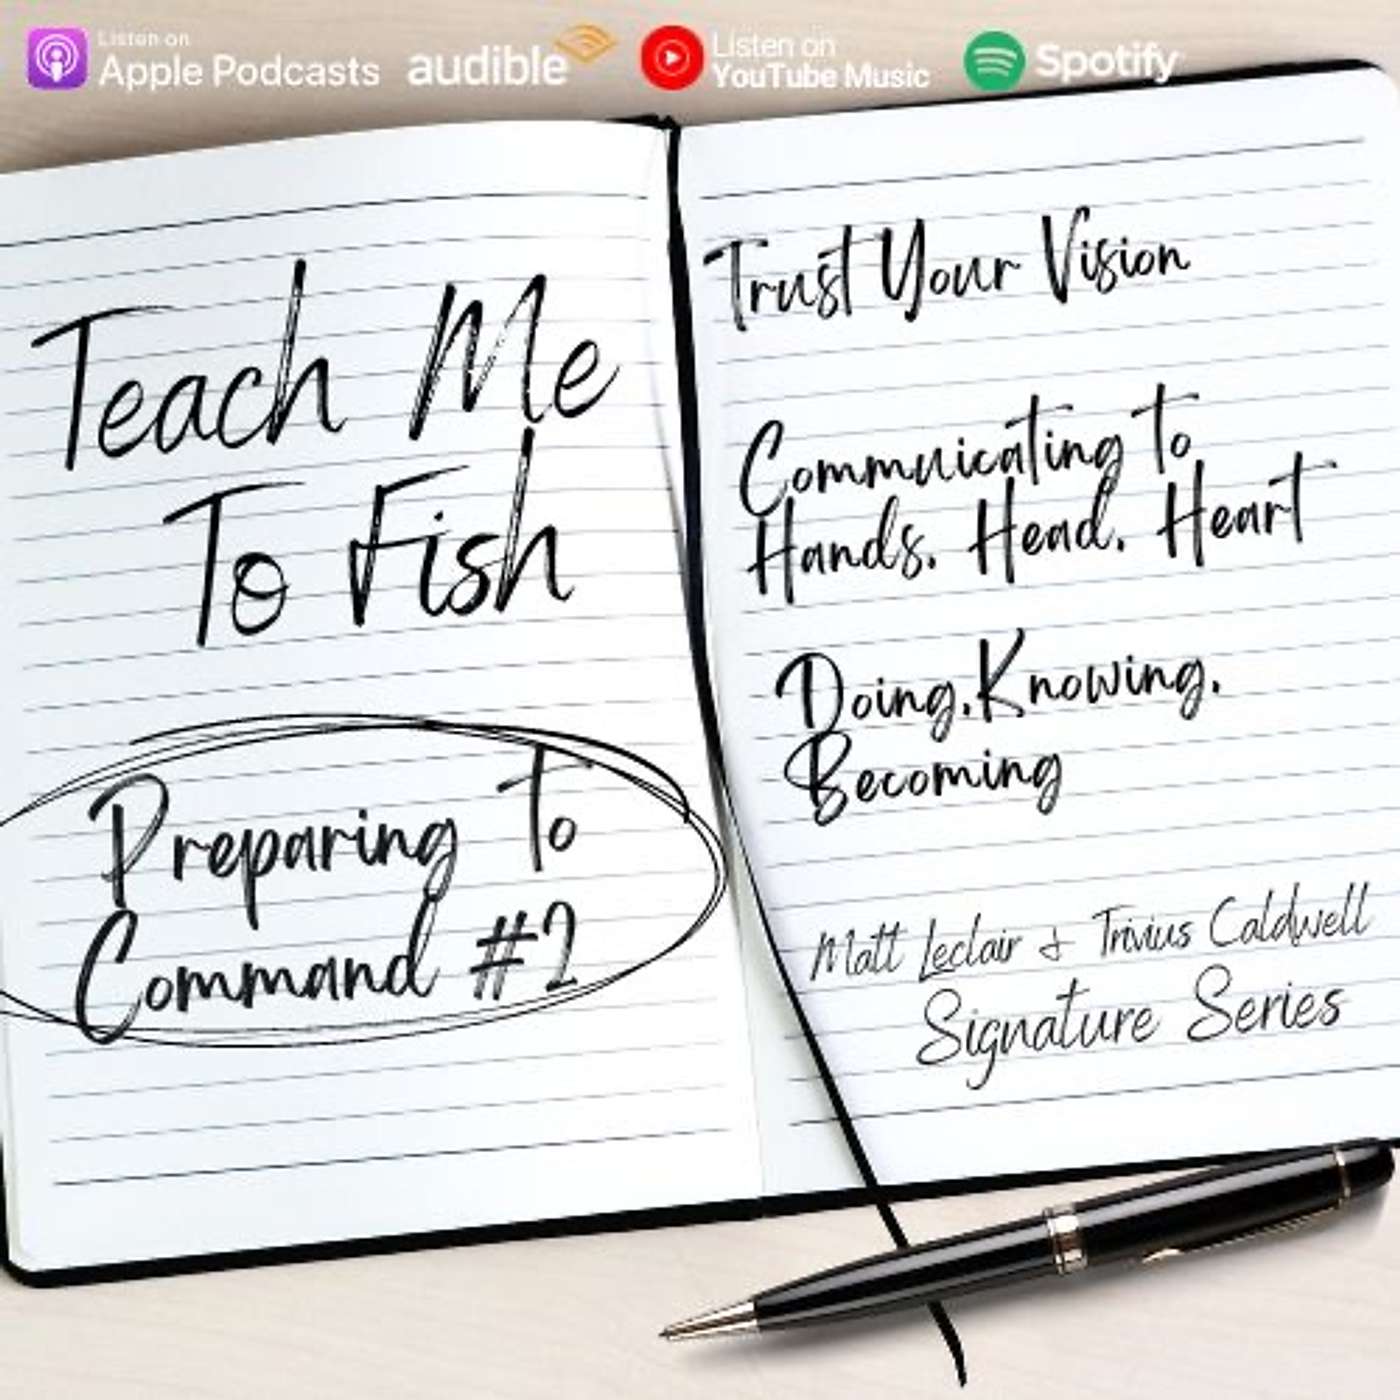 Listen on
Apple Podcasts
audible
Listen on
YouTube Music
Spotify
Teach Me
To Fish
Preparing To
Command #2
Trust Your Vision
Commuicating to
Hands. Head. Heart
Doing.Knowing.
Becoming
Matt Leclair & Trivius Caldwell
Signature Series